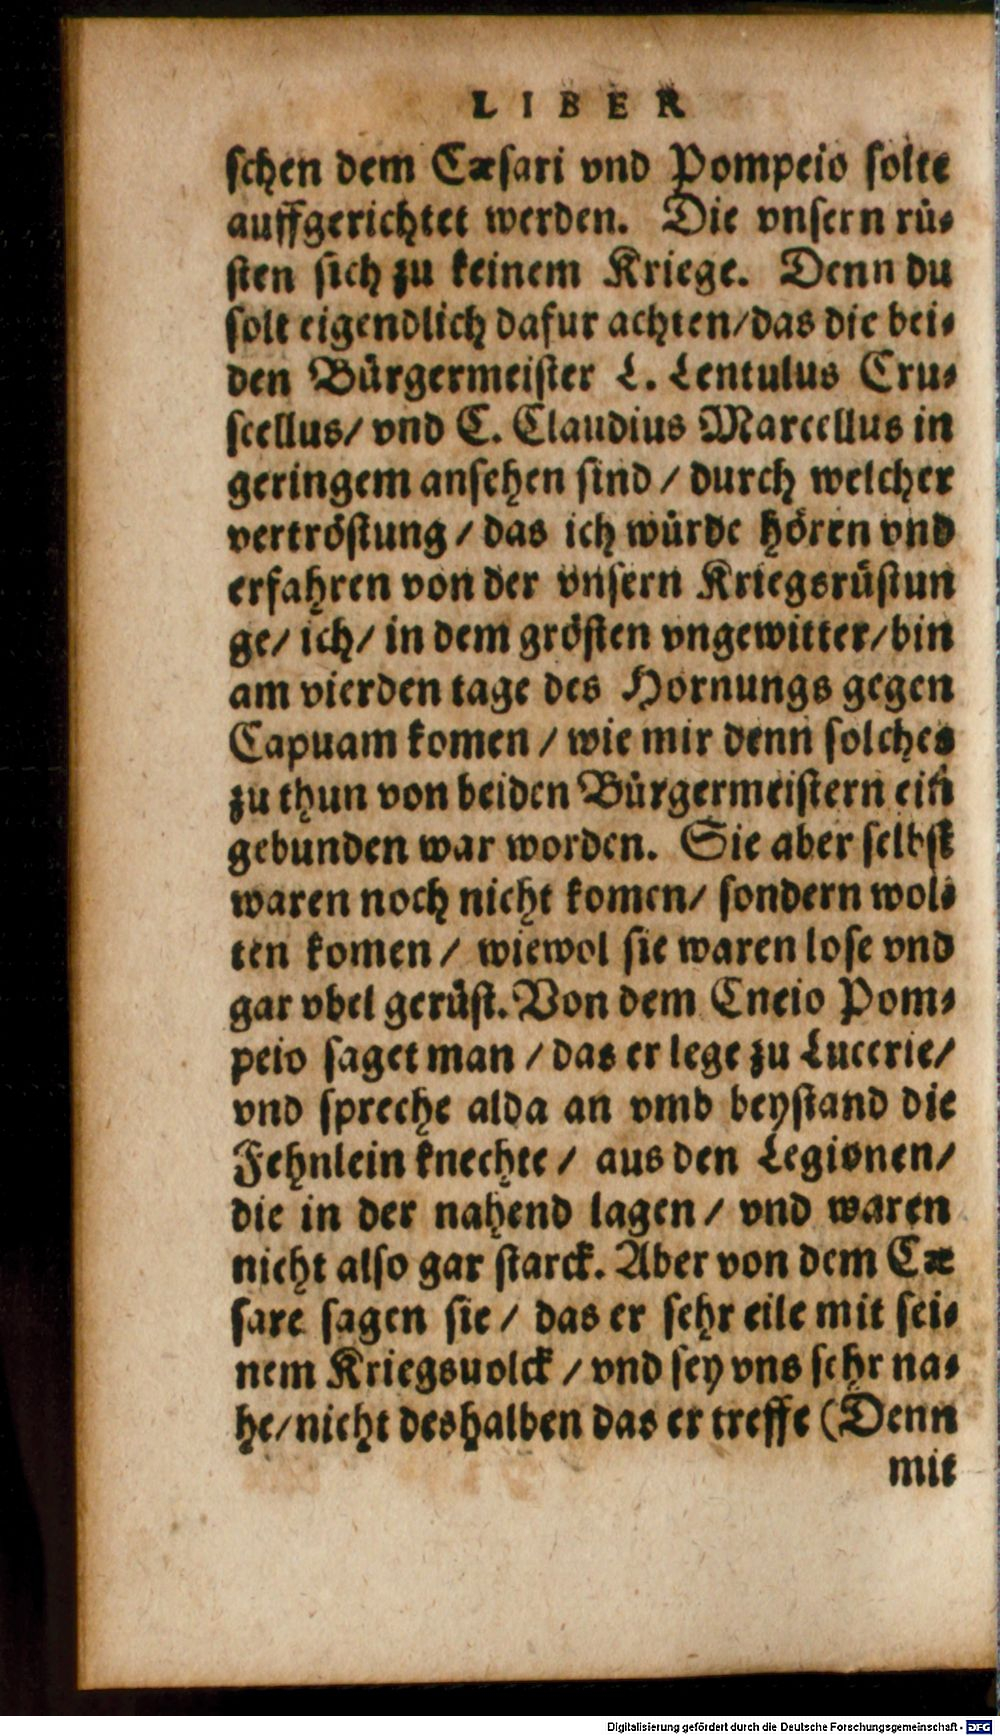 LIBER
schen dem Cæsari vnd Pompeio solte
auffgerichtet werden. Die vnsern rü-
sten sich zu keinem Kriege. Denn du
solt eigendlich dafur achten/das die bei-
den Bürgermeister L. Lentulus Cru-
scellus/ vnd C. Claudius Marcellus in
geringem ansehen sind / durch welcher
vertröstung / das ich würde hören vnd
erfahren von der vnsern Kriegsrüstun
ge/ ich/ in dem grösten vngewitter/bin
am vierden tage des Hornungs gegen
Capuam komen / wie mir denn solches
zu thun von beiden Bürgermeistern ein
gebunden war worden. Sie aber selbst
waren noch nicht komen/ sondern wol-
ten komen / wiewol sie waren lose vnd
gar vbel gerüst. Von dem Cneio Pom-
peio saget man / das er lege zu Lucerie/
vnd spreche alda an vmb beystand die
Fehnlein knechte / aus den Legionen/
die in der nahend lagen / vnd waren
nicht also gar starck. Aber von dem Cæ
sare sagen sie / das er sehr eile mit sei-
nem Kriegsuolck / vnd sey vns sehr na-
he/nicht deshalben das er treffe (Denn
mit
Digitalisierung gefördert durch die Deutsche Forschungsgemeinschaft - DFG